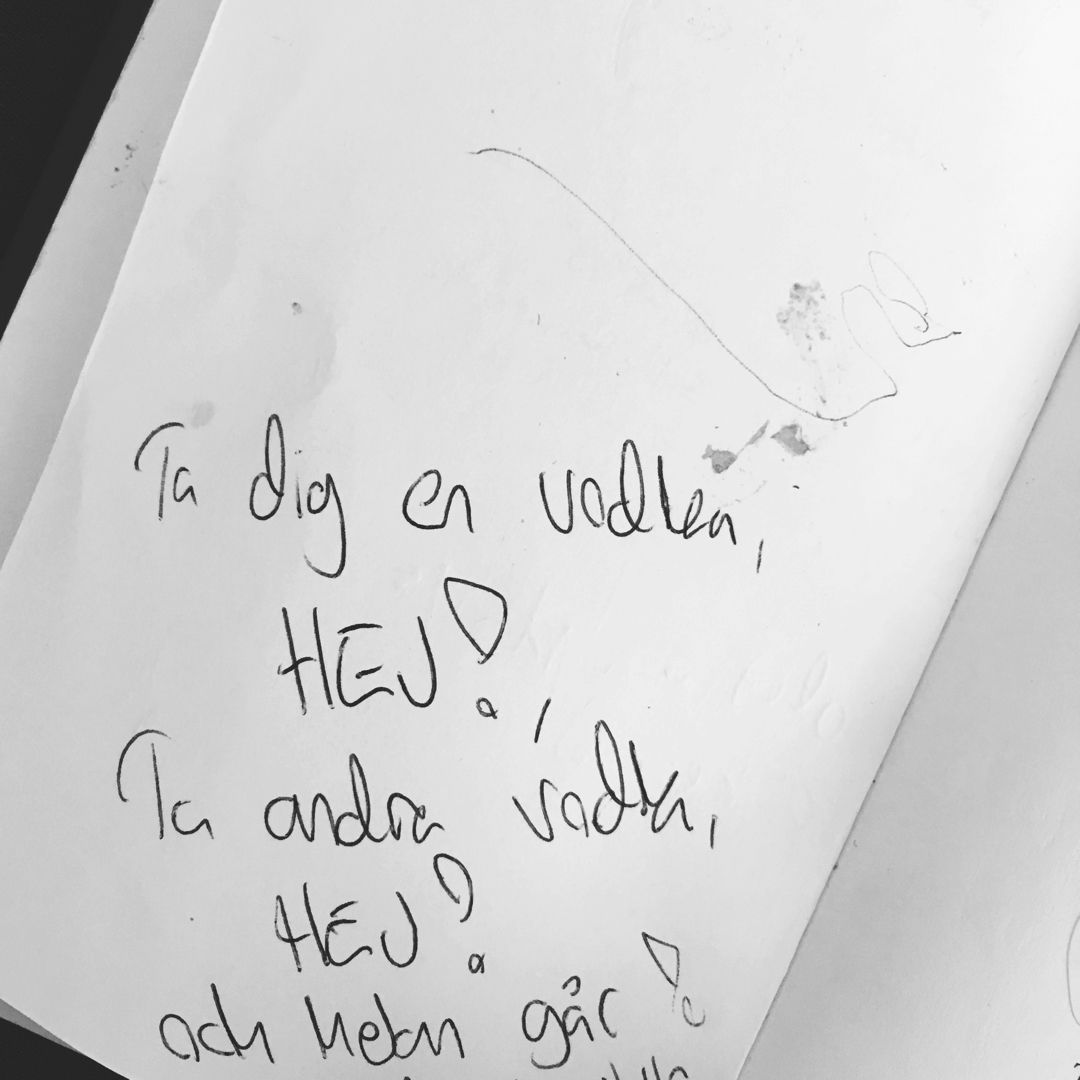 Ta dig en vodka,
HEJ!
Ta andra vodka,
HEJ!
och helan går!